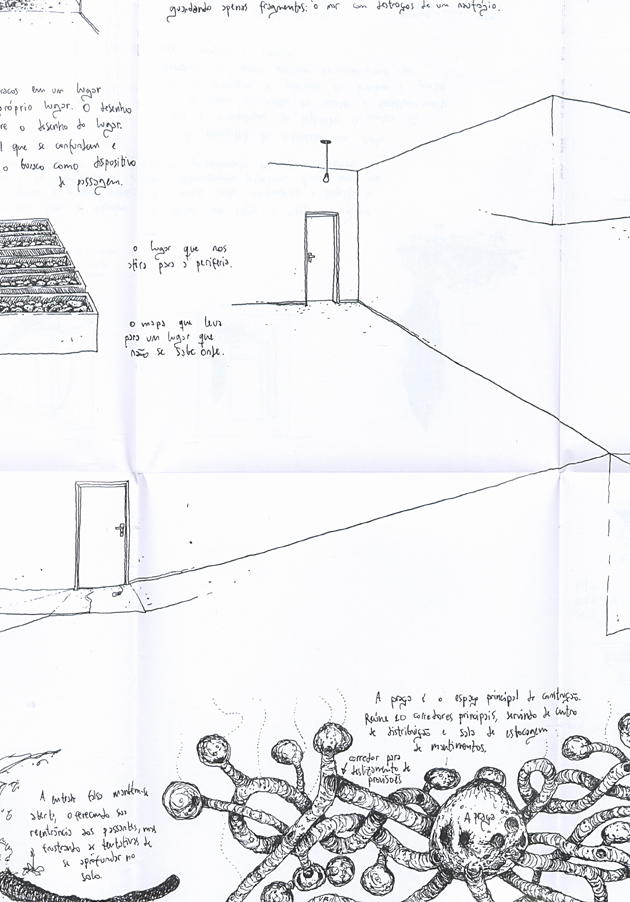 guardando apenas fragmentos: o mar com destroços de um naufrágio.
racos em um lugar
próprio lugar. O desenho
re o desenho do lugar.
l que se confundem e
o buraco como dispositivo
de passagem.
o lugar que nos
atira para a periferia.
o mapa que leva
para um lugar que
não se sabe onde.
A praça é o espaço principal da construção.
Reúne 10 corredores principais, servindo de centro
de distribuição e sala de estocagem
de mantimentos.
corredor para
deslizamento de
provisões
A praça
A entrada falsa mantém-se
aberta, oferecendo sua
reentrância aos passantes, mas
frustrando as tentativas de
se aprofundar no
solo.